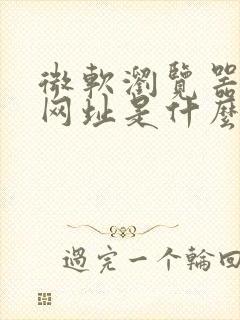 微軟瀏覽器
网址是什麼
過完一个輪回